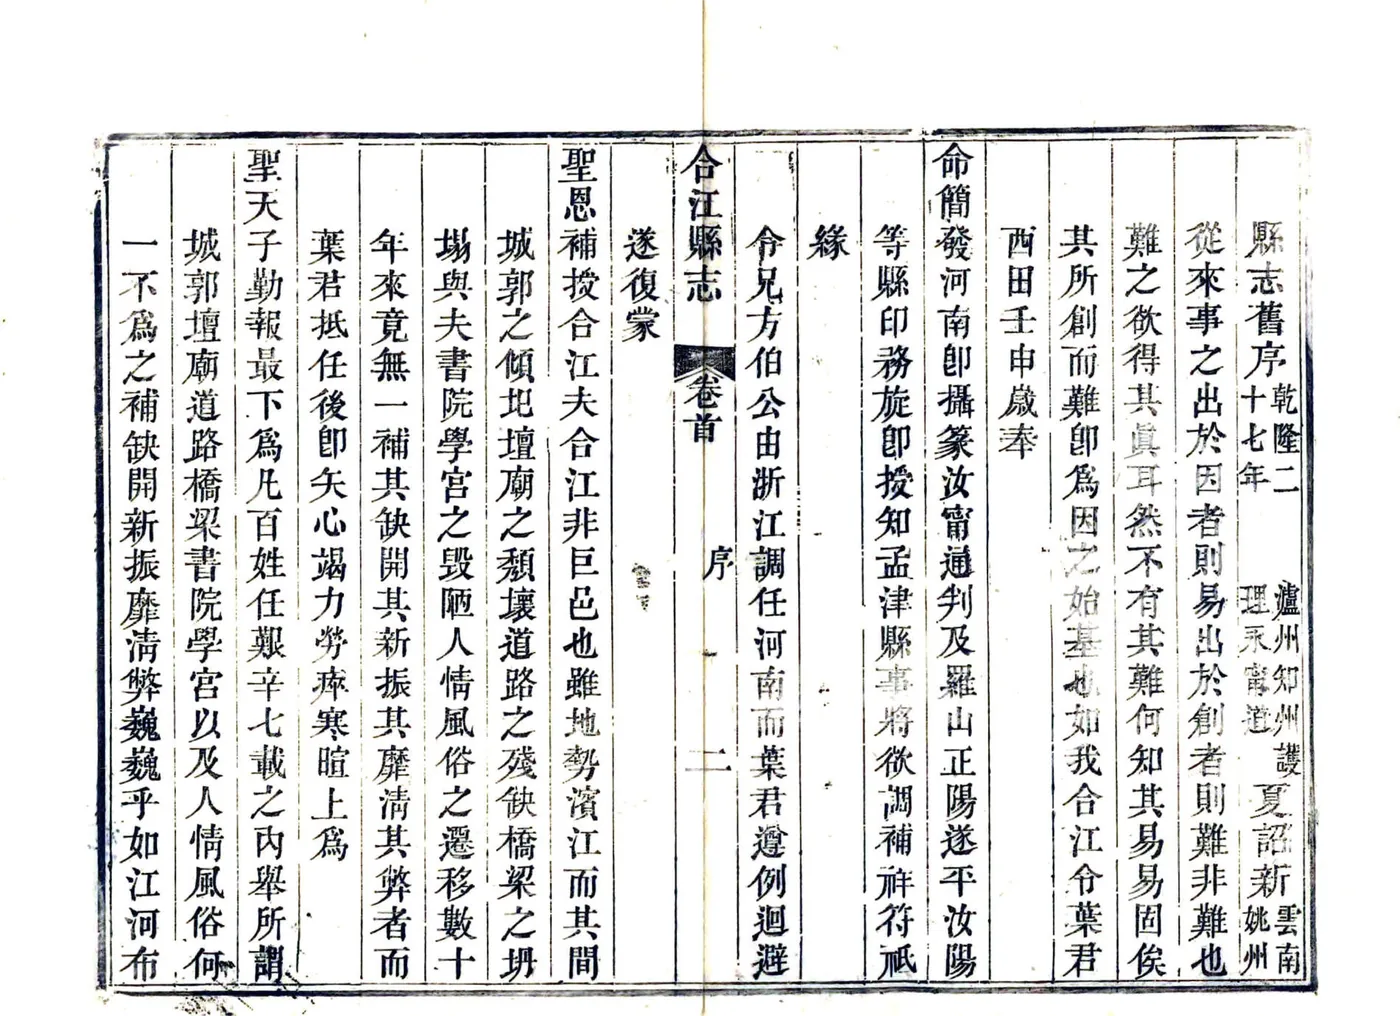 縣志舊序 乾隆二十七年 瀘州知州護理永寧道 夏詔新 雲南姚州
從來事之出於因者則易出於創者則難非難也
難之欲得其眞耳然不有其難何知其易易固俟
其所創而難卽爲因之始基也如我合江令葉君
西田壬申歲奉
命簡發河南卽攝篆汝甯通判及羅山正陽遂平汝陽
等縣印務旋卽授知孟津縣事將欲調補祥符祇
緣
令兄方伯公由浙江調任河南而葉君遵例迴避
合江縣志 卷首 序 二
遂復蒙
聖恩補授合江夫合江非巨邑也雖地勢濱江而其間
城郭之傾圯壇廟之頹壞道路之殘缺橋梁之坍
塌與夫書院學宮之毀陋人情風俗之遷移數十
年來竟無一補其缺開其新振其靡清其弊者而
葉君抵任後卽矢心竭力勞瘁寒暄上爲
聖天子勤報最下爲凡百姓任艱辛七載之內舉所謂
城郭壇廟道路橋梁書院學宮以及人情風俗何
一不爲之補缺開新振靡清弊巍巍乎如江河布